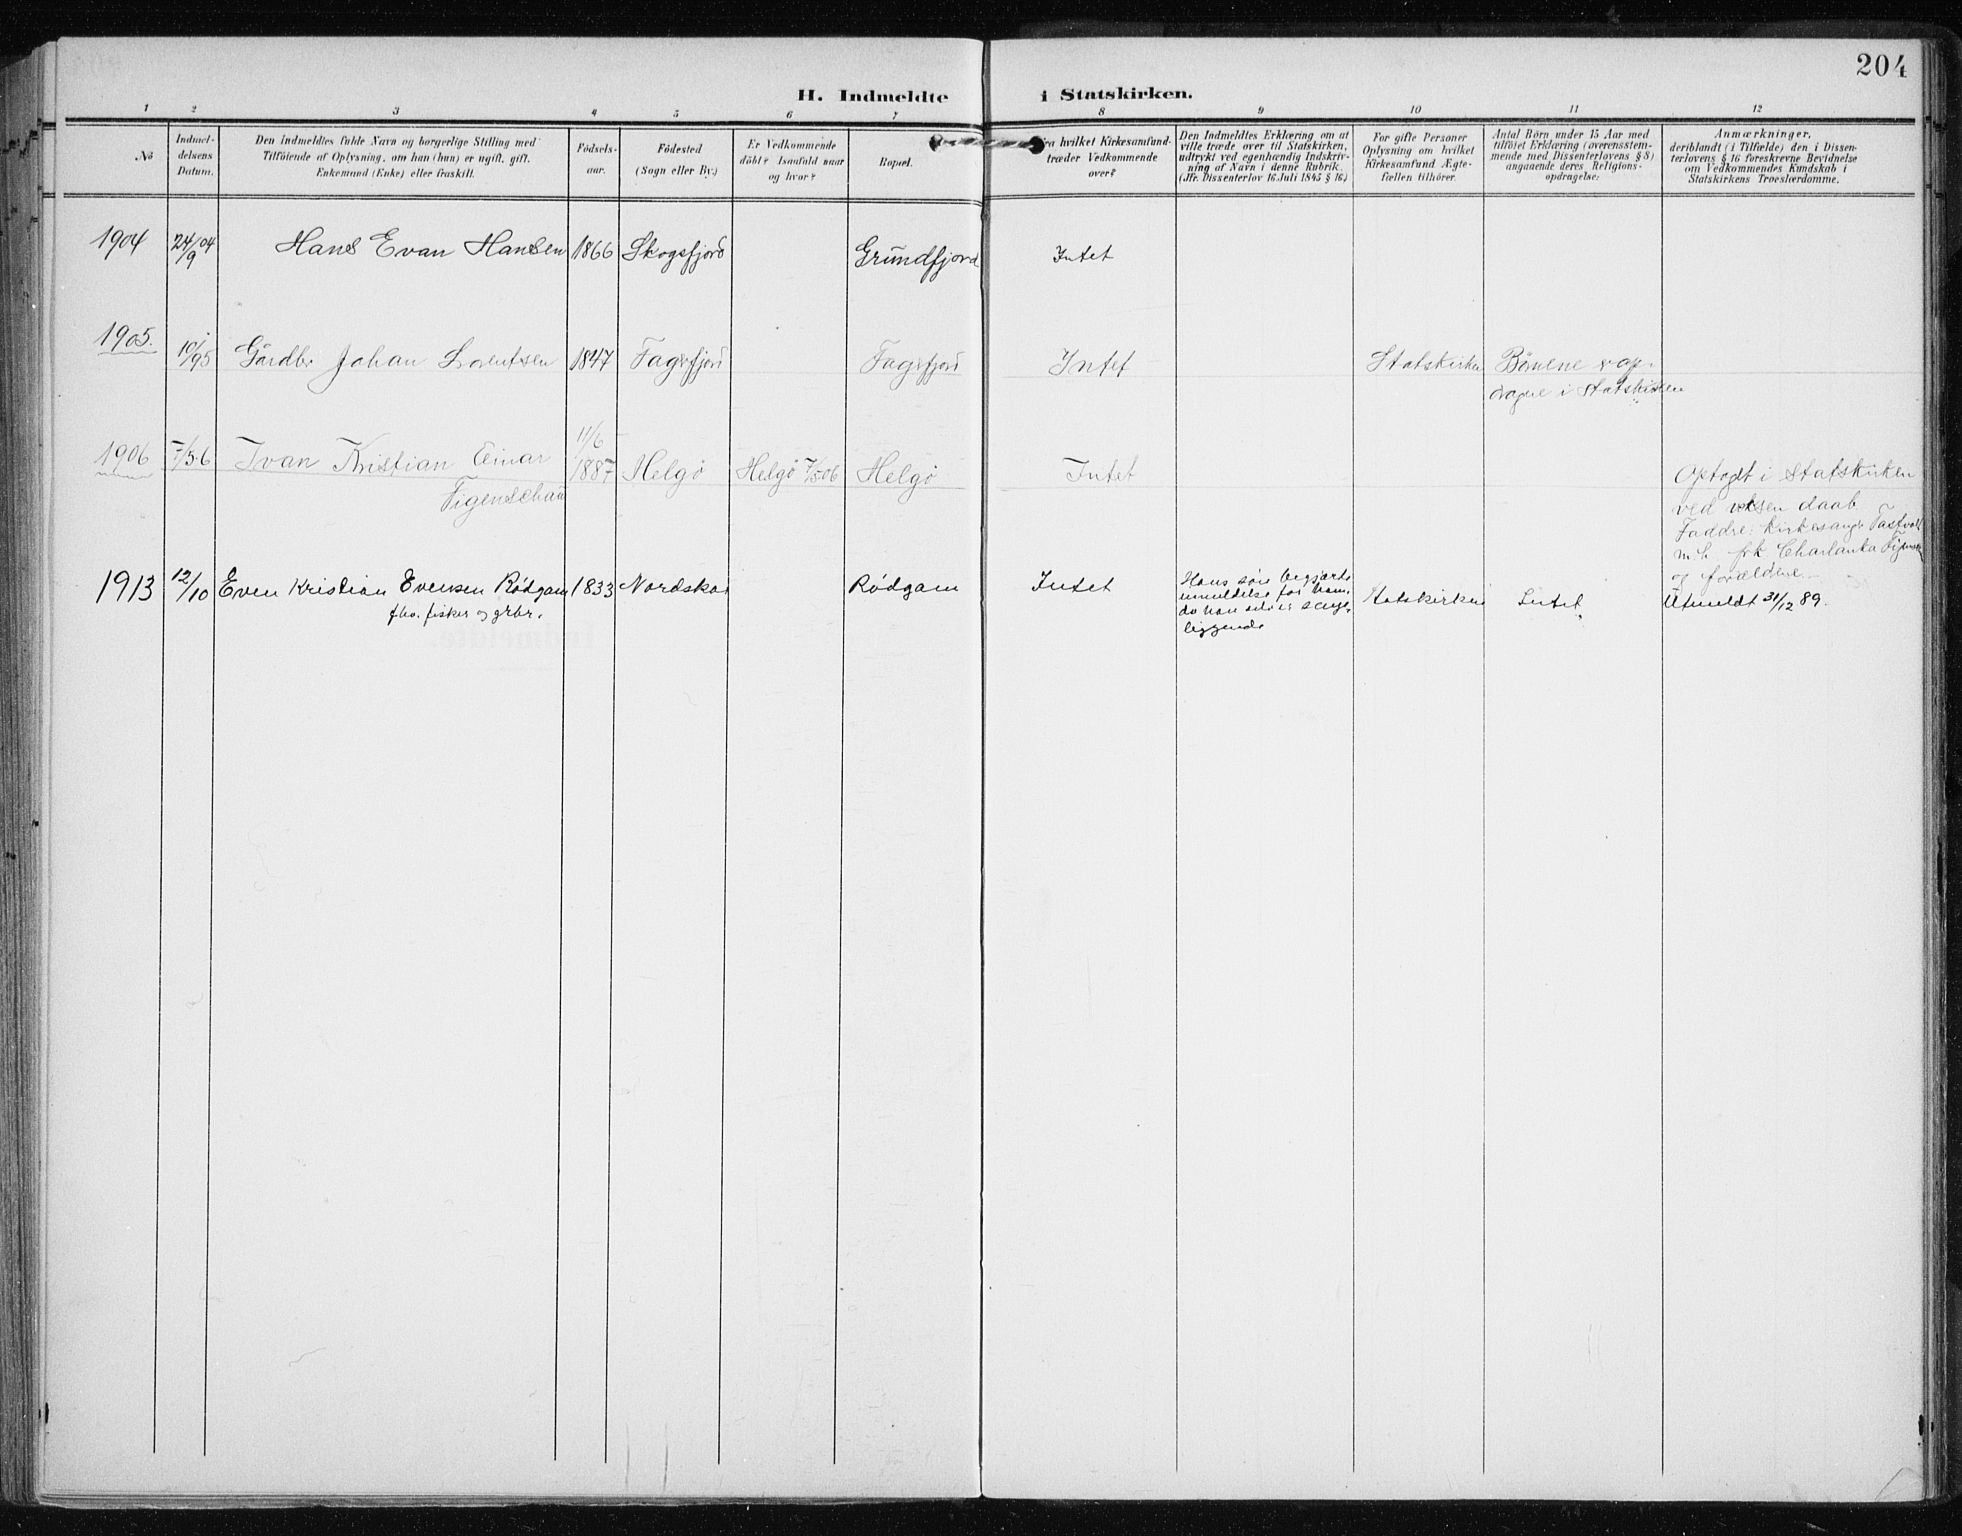 204
H. Indmeldte i Statskirken.
1 2 3 4 5 6 7 8 9 10 11 12
No
Indmel-
delsens
Datum.
Den Indmeldtes fulde Navn og borgerlige Stilling med
Tilföiende af Oplysning, om han (hun) er ugift, gift,
Enkemand (Enke) eller fraskilt.
Födsels-
aar.
Födested
(Sogn eller By.)
Er Vedkommende
döbt? Isaafald naar
og hvor?
Bopæl.
hvilket Kirkesamfund-
træder Vedkommende
over?
Den Indmeldtes Erklæring om at
ville træde over til Statskirken,
udtrykt ved egenhændig Indskriv-
ning af Navn i denne Rubrik.
(Jfr. Dissenterlov 16. Juli 1845 § 16)
For gifte Personer
Oplysning om hvilket
Kirkesamfund Ægte-
fællen tilhörer.
Antal Börn under 15 Aar med
tilföiet Erklæring (overensstem-
mende med Dissenterlovens § 8)
angaaende deres Religions-
opdragelse.
Anmærkninger,
deriblandt (i Tilfælde) den i Dissen-
terlovens § 16 foreskrevne Bevidnelse
om Vedkommendes Kundskab i
Statskirkens Troeslærdomme.
1904 24/9 04 Hans Evan Hansen 1866 Skogsfjord Grundfjord Intet
1905. 10/95 Gårdbr Johan Lorentsen 1847 Fagerfjord Fagerfjord Intet Statskirken Börnene
i Statskirken
1906 7/5 6 Ivan Kristian Einar
Figenschau
11/6
1887 Helgö Helgö 7/5 06 Helgö Intet
Optaget i Statskirken
ved voksen daab
Faddre: Kirkesangr
frk
og forældrene
1913 12/10 Even Kristian Evensen Rödgam 1833 Nordskar Rödgam Intet
fhv. fisker og grbr.
Hans sön begjærte
inmeldelse for ham,
da han selv er senge-
liggende
Statskirken Intet Utmeldt 31/12 89.